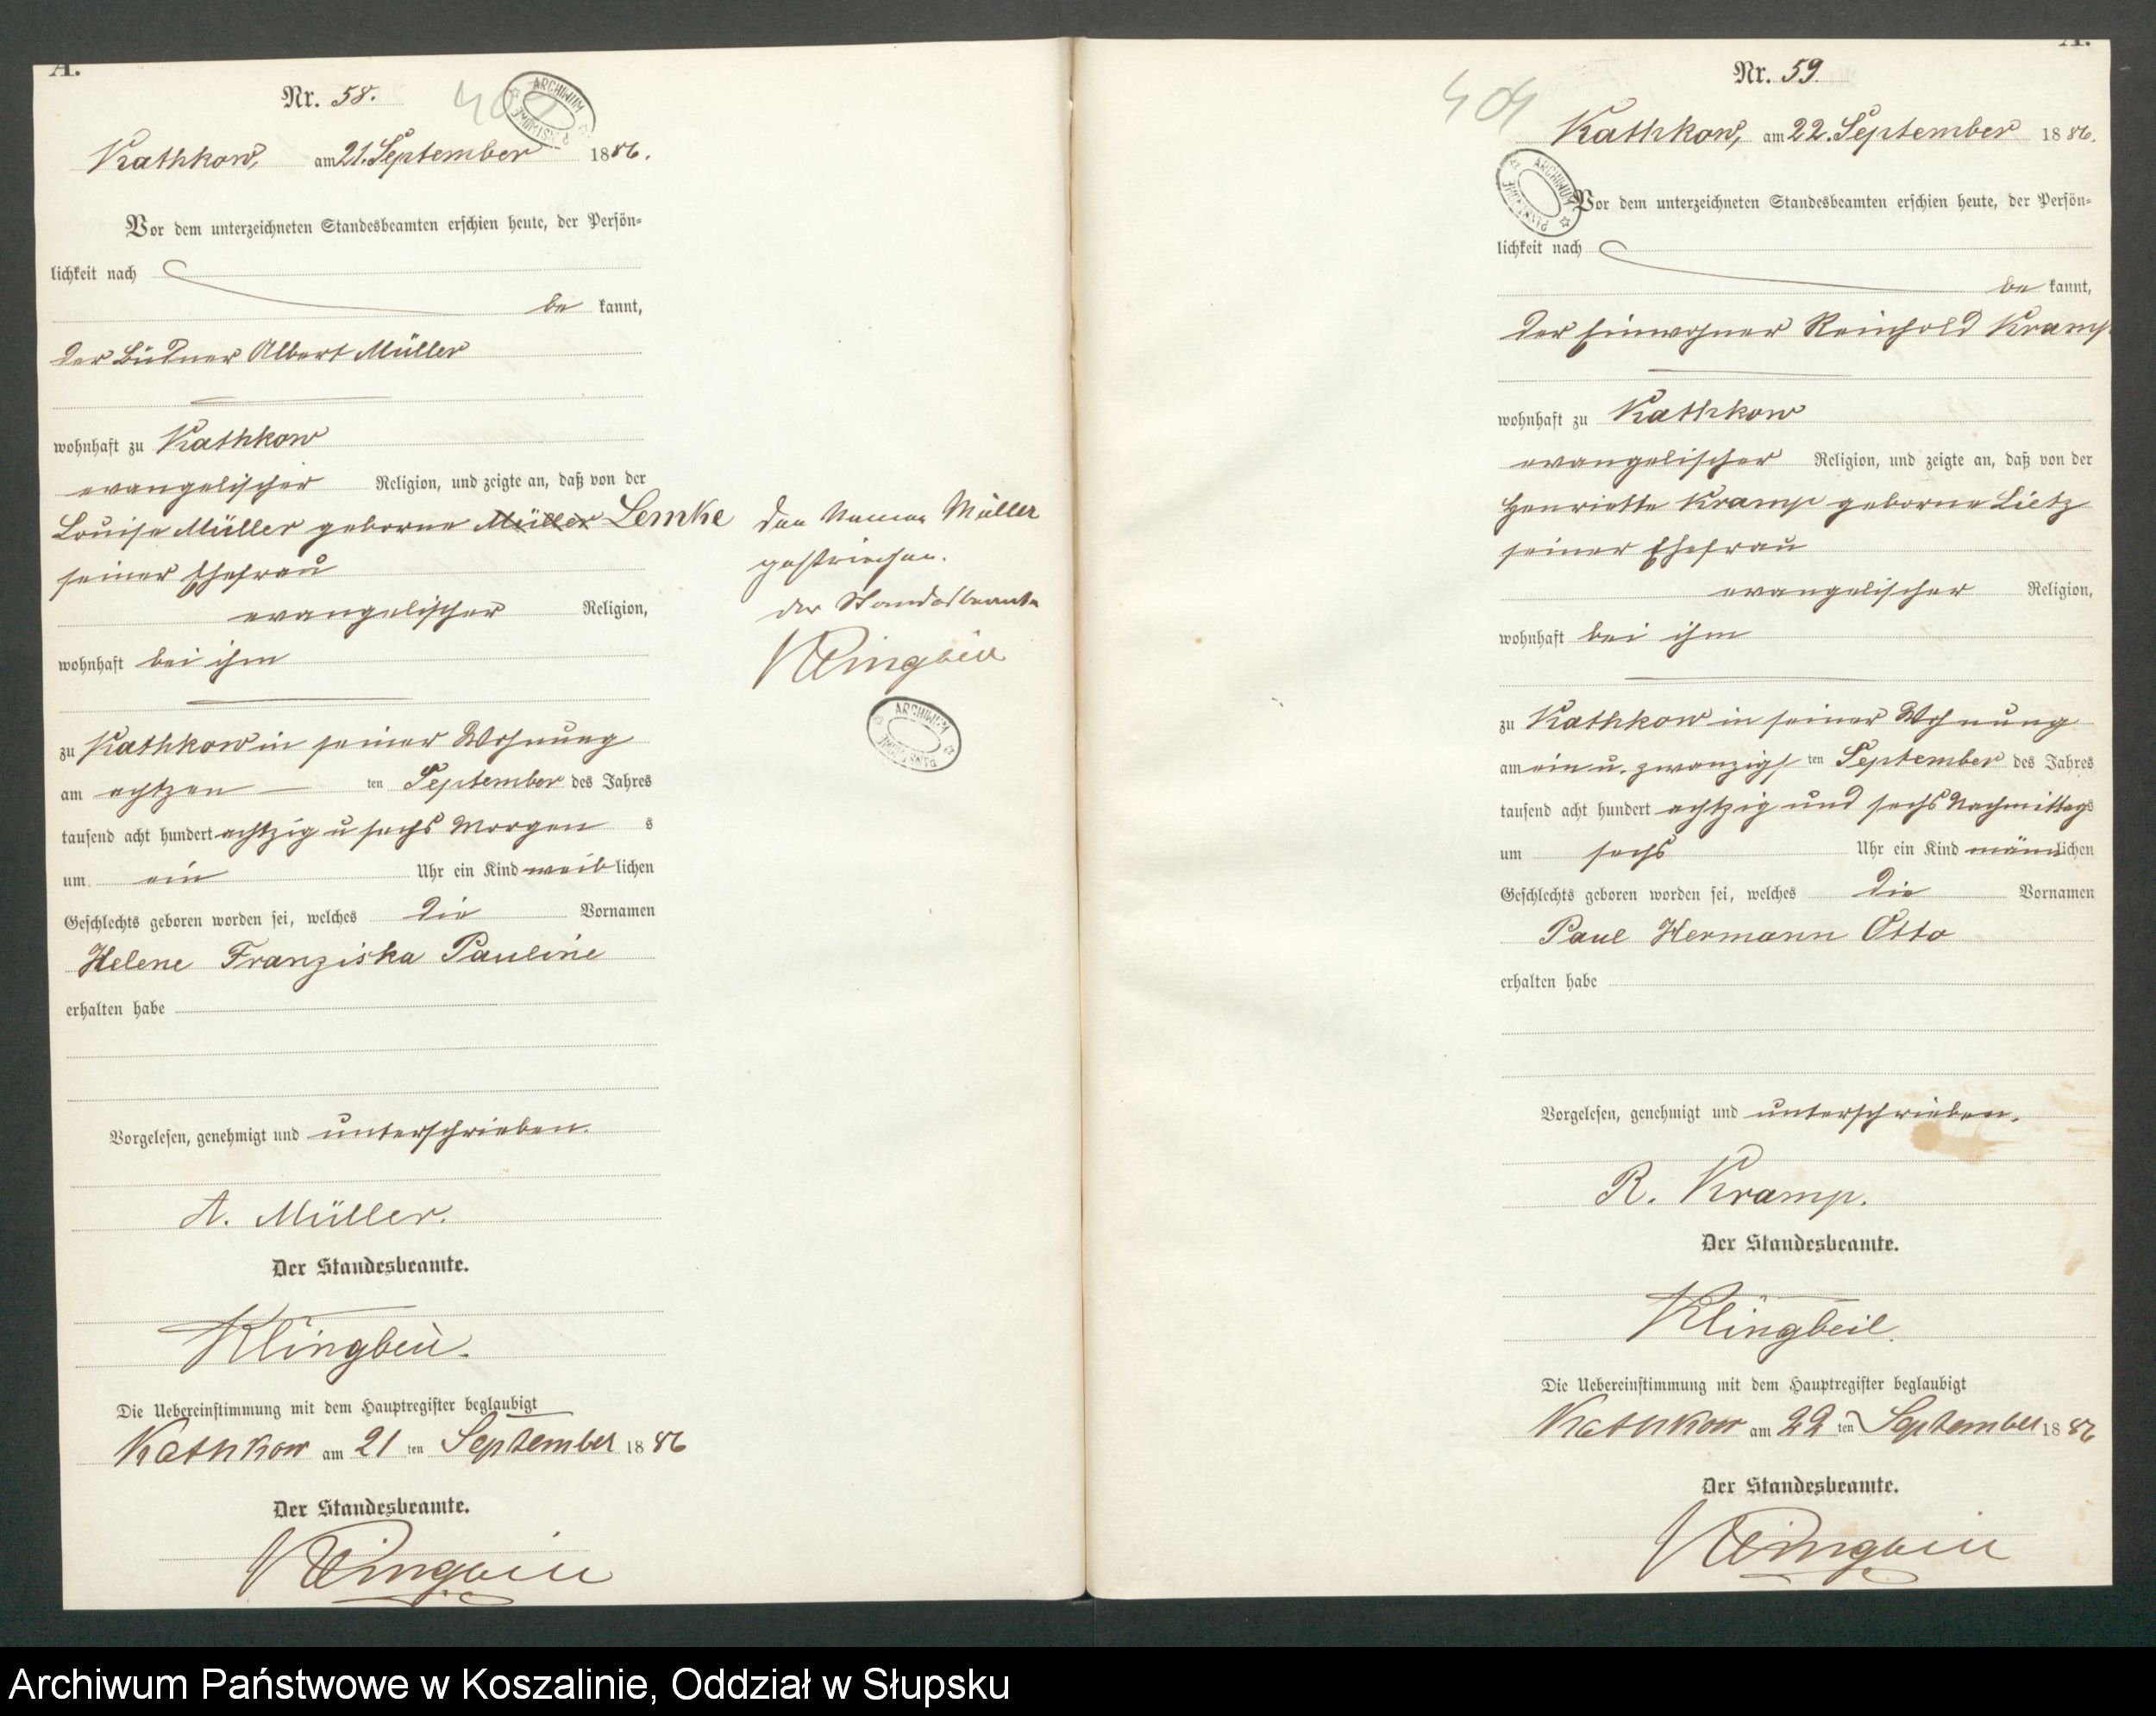 A.
Nr. 58.
Kathkow, am 21. September 1886.
Vor dem unterzeichneten Standesbeamten erschien heute, der Persön-
lichkeit nach
be kannt,
der Büdner Albert Müller
wohnhaft zu Kathkow
evangelischer Religion, und zeigte an, daß von der
Louise Müller geborne Müller Lemke
seiner Ehefrau
evangelischer Religion,
wohnhaft bei ihm
zu Kathkow in seiner Wohnung
am achtzen ten September des Jahres
tausend acht hundert achtzig u sechs Morgen s
um ein Uhr ein Kind weib lichen
Geschlechts geboren worden sei, welches die Vornamen
Helene Franziska Pauline
erhalten habe
Vorgelesen, genehmigt und unterschrieben.
A. Müller.
Der Standesbeamte.
Klingbeil.
Die Uebereinstimmung mit dem Hauptregister beglaubigt
Kathkow am 21 ten September 1886
Der Standesbeamte.
Klingbeil
Den Namen Müller
gestrichen.
der Standesbeamte
Klingbeil
ARCHIWUM
A.
404
Nr. 59.
Kathkow, am 22. September 1886.
Vor dem unterzeichneten Standesbeamten erschien heute, der Persön-
lichkeit nach
be kannt,
der Einwohner Reinhold Kramp
wohnhaft zu Kathkow
evangelischer Religion, und zeigte an, daß von der
Henriette Kramp geborne Lietz
seiner Ehefrau
evangelischer Religion,
wohnhaft bei ihm
zu Kathkow in seiner Wohnung
am ein u. zwanzigs ten September des Jahres
tausend acht hundert achtzig und sechs Nachmittags
um sechs Uhr ein Kind männlichen
Geschlechts geboren worden sei, welches die Vornamen
Paul Hermann Otto
erhalten habe
Vorgelesen, genehmigt und unterschrieben.
R. Kramp.
Der Standesbeamte.
Klingbeil.
Die Uebereinstimmung mit dem Hauptregister beglaubigt
Kathkow am 22 ten September 1886
Der Standesbeamte.
Klingbeil
Archiwum Państwowe w Koszalinie, Oddział w Słupsku